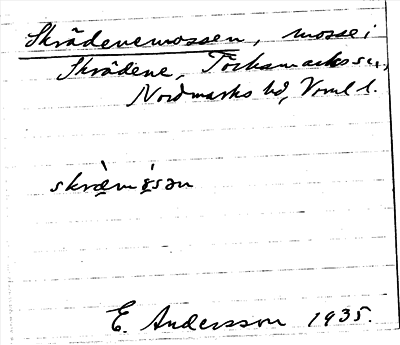 Skrädenemossen, mosse i
Skrädene, Töcksmarks sn,
Nordmarks hd, Vrml l.
skræ̀mǫ́sən
E. Andersson 1935.